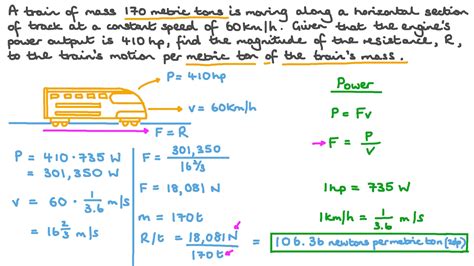 A train of mass 170 metric tons is moving along a horizontal section
of track at a constant speed of 60km/h. Given that the engine's
power output is 410hp, find the magnitude of the resistance, R,
to the train's motion per metric ton of the train's mass.
P = 410hp
v = 60km/h
F = R
P = 410 · 735 W
= 301,350 W
v = 60 · 1/3.6 m/s
= 16 2/3 m/s
F = 301,350 / 16 2/3
F = 18,081 N
m = 170t
R/t = 18,081 N / 170t = 106.36 newtons per metric ton (2dp)
Power
P = Fv
→ F = P/v
1hp = 735 W
1km/h = 1/3.6 m/s